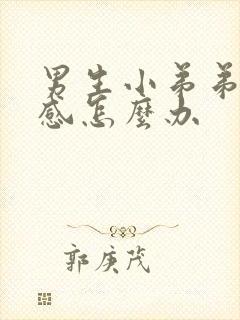 男生小弟弟
感怎麼办
郭庚茂